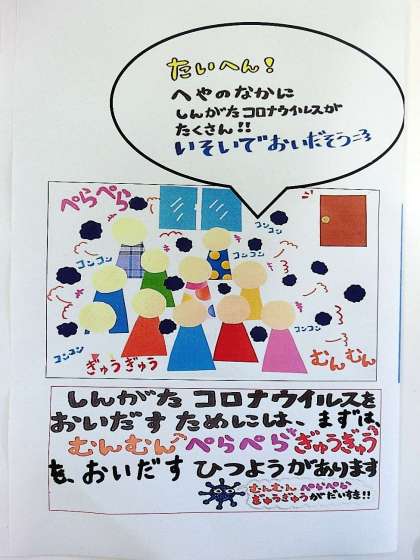 たいへん！
へやのなかに
しんがたコロナウイルスが
たくさん！！
いそいでおいだそう
ぺらぺら
コンコン
コンコン
コンコン
コンコン
コンコン
コンコン
ぎゅうぎゅう
むんむん
しんがたコロナウイルスを
おいだすためには、まずは、
むんむん ぺらぺら ぎゅうぎゅう
を、おいだす ひつようがあります
むんむん ぺらぺら
ぎゅうぎゅうがだいすき！！